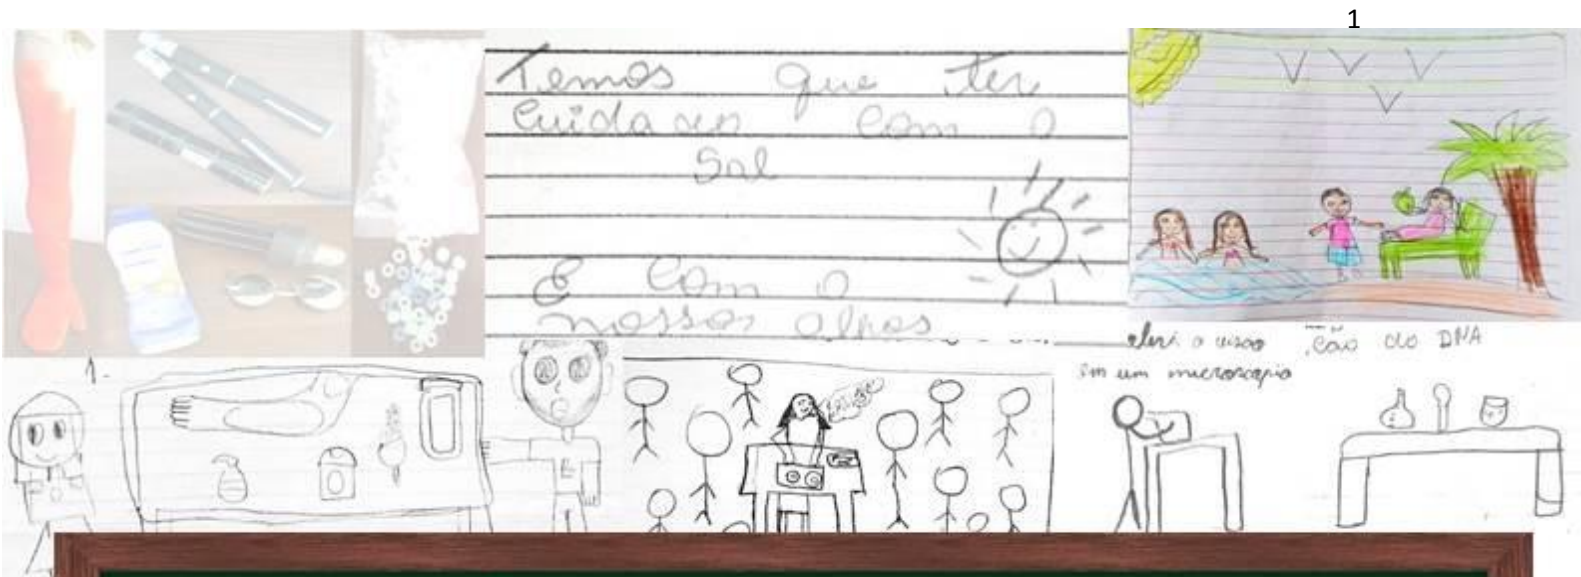 1
Temos que ter
cuidado com o
Sol
E com o
nossos olhos
1.
ção do DNA
em um microscopio